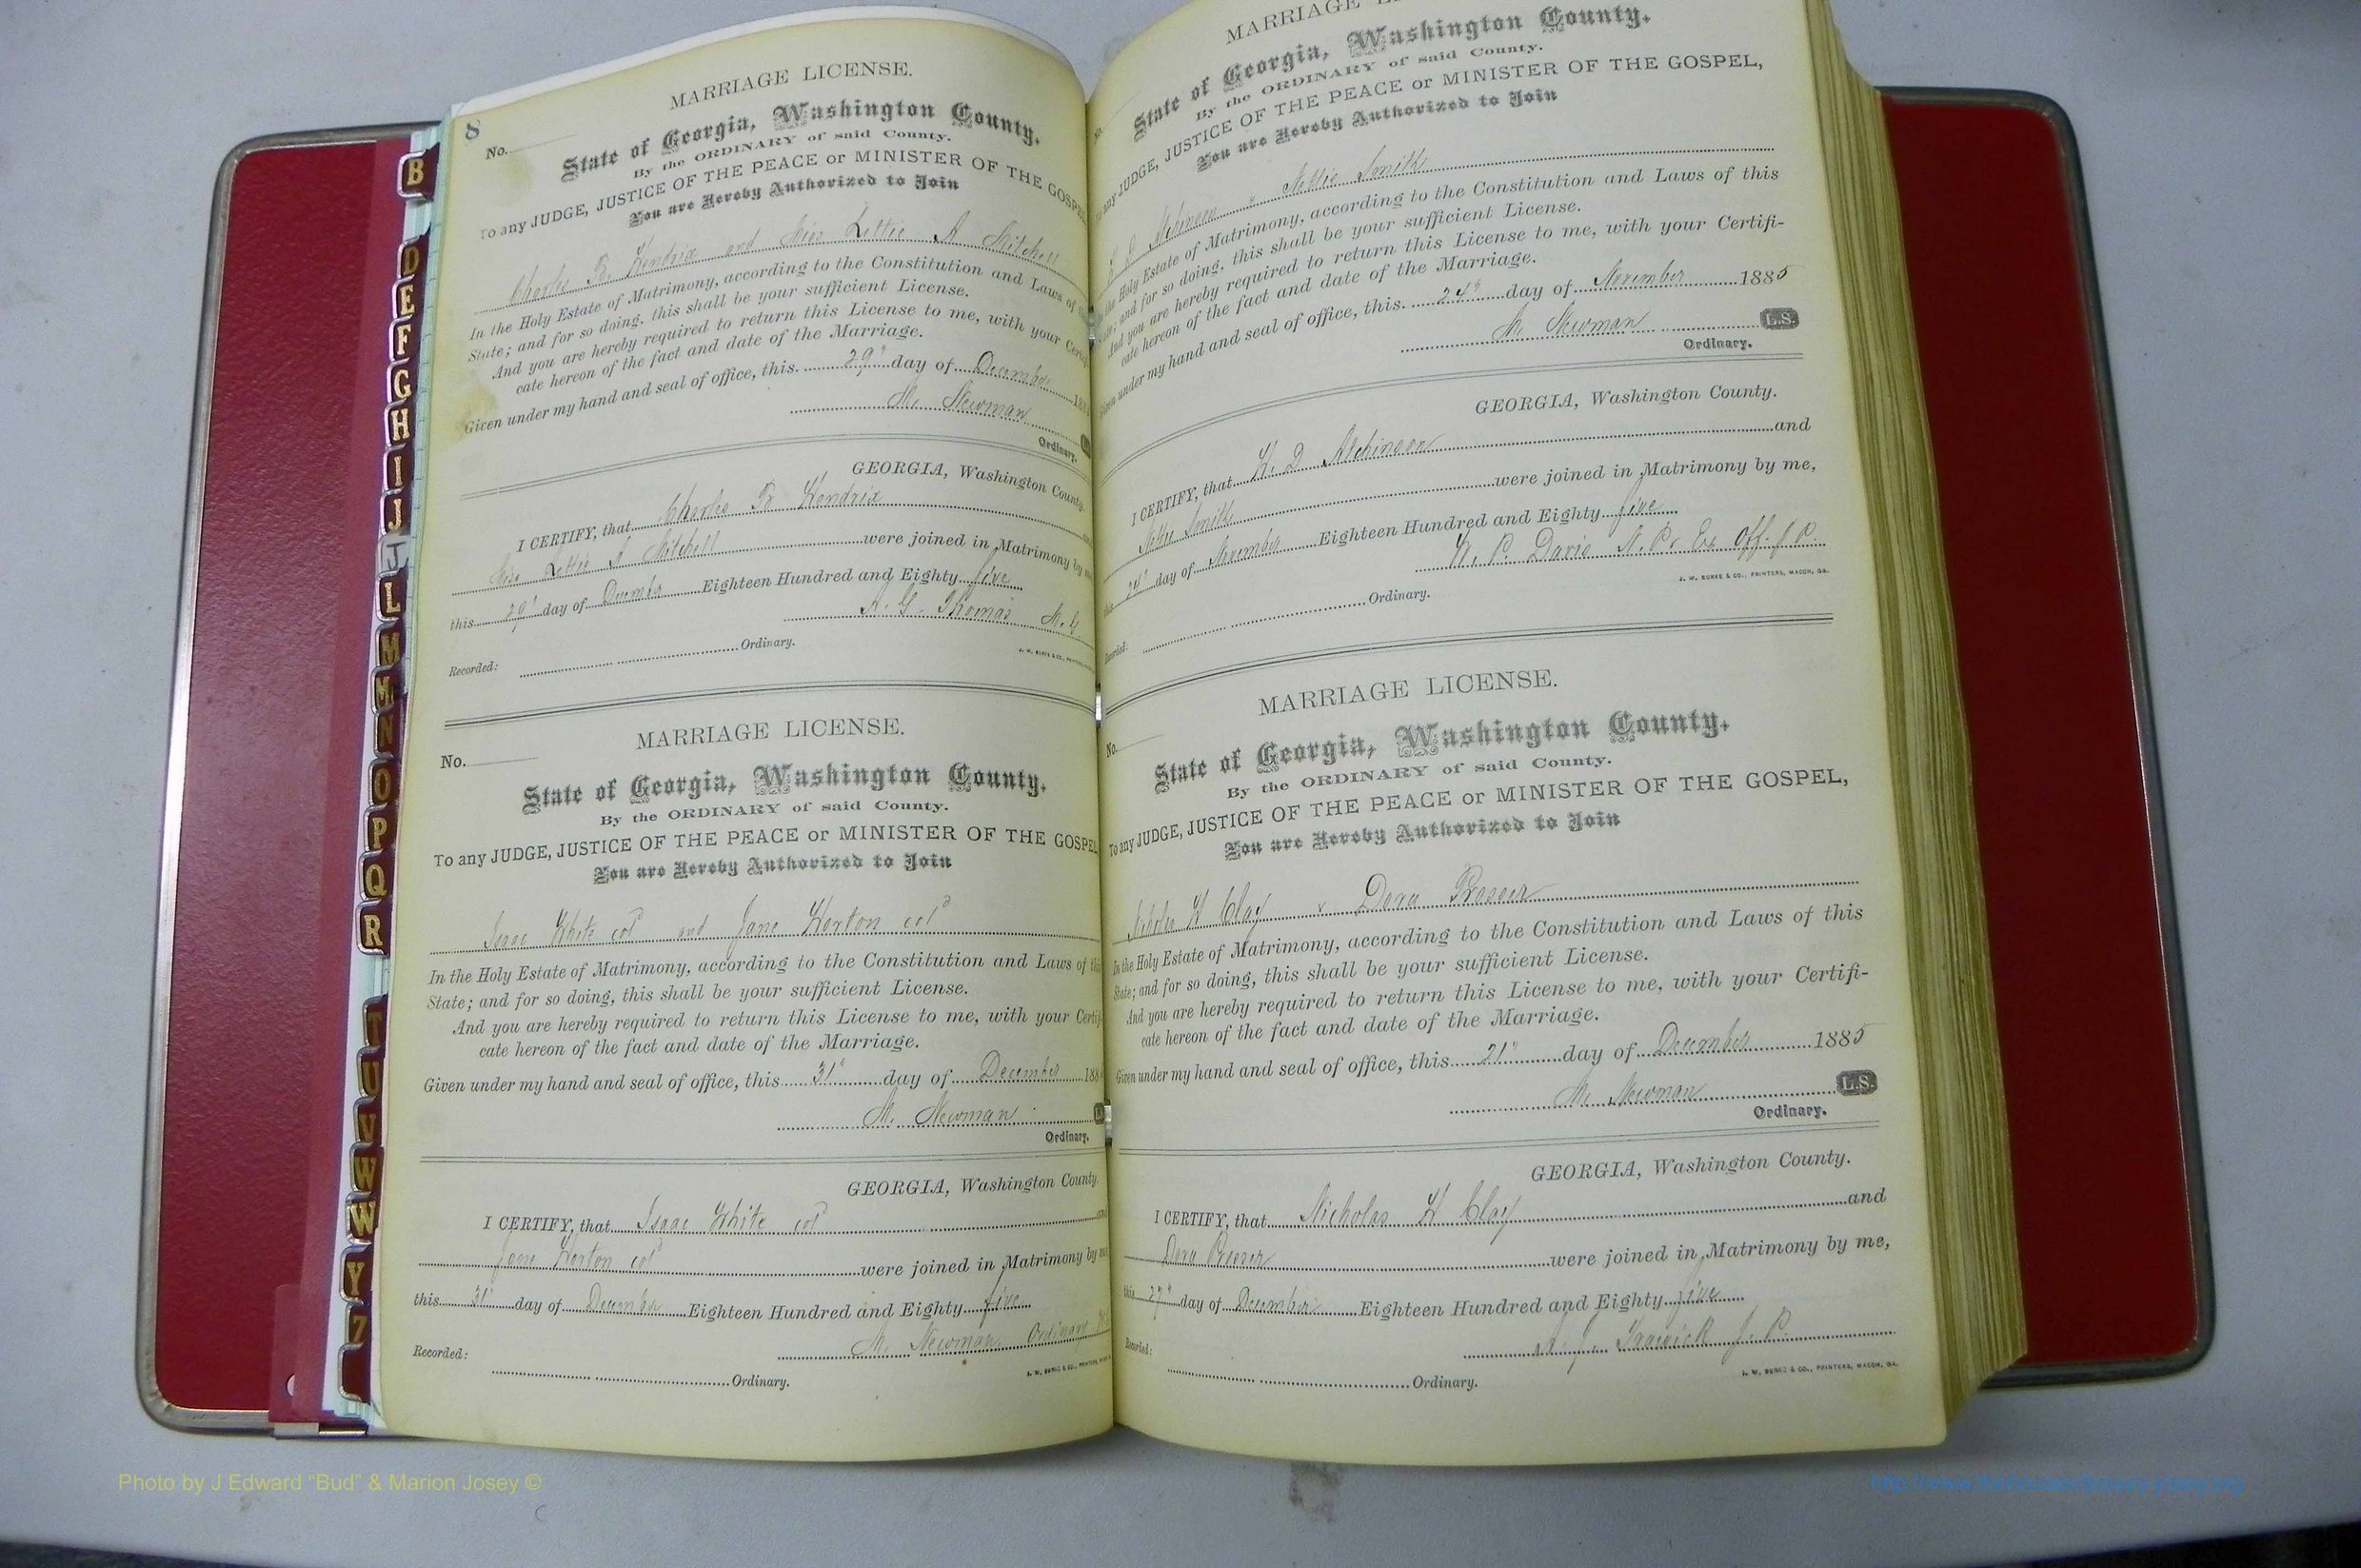 8
MARRIAGE LICENSE.
No.
State of Georgia, Washington County.
By the ORDINARY of said County.
To any JUDGE, JUSTICE OF THE PEACE or MINISTER OF THE GOSPEL
You are Hereby Authorized to Join
Charles R. Hendrix and Miss Lettie A Mitchell
In the Holy Estate of Matrimony, according to the Constitution and Laws of
State; and for so doing, this shall be your sufficient License.
And you are hereby required to return this License to me, with your Certifi
cate hereon of the fact and date of the Marriage.
Given under my hand and seal of office, this 29" day of December 188
M. Newman
Ordinary.
GEORGIA, Washington County.
I CERTIFY, that Charles R Hendrix
Miss Lettie A Mitchell were joined in Matrimony by me
this 29" day of December Eighteen Hundred and Eighty five
A. G. Thomas M. G
Recorded: Ordinary.
J. W. BURKE & CO., PRINTERS,
MARRIAGE LICENSE.
No.
State of Georgia, Washington County.
By the ORDINARY of said County.
To any JUDGE, JUSTICE OF THE PEACE or MINISTER OF THE GOSPEL
You are Hereby Authorized to Join
Isaac White cold and Jane Horton cold
In the Holy Estate of Matrimony, according to the Constitution and Laws of this
State; and for so doing, this shall be your sufficient License.
And you are hereby required to return this License to me, with your Certifi
cate hereon of the fact and date of the Marriage.
Given under my hand and seal of office, this 31" day of December 188
M. Newman
Ordinary.
GEORGIA, Washington County.
I CERTIFY, that Isaac White cold
Jane Horton cold were joined in Matrimony by me
this 31" day of December Eighteen Hundred and Eighty five
M. Newman Ordinary
Recorded: Ordinary.
J. W. BURKE & CO., PRINTERS,
MARRIAGE
State of Georgia, Washington County.
By the ORDINARY of said County.
To any JUDGE, JUSTICE OF THE PEACE or MINISTER OF THE GOSPEL,
You are Hereby Authorized to Join
Nettie Smith
In the Holy Estate of Matrimony, according to the Constitution and Laws of this
State; and for so doing, this shall be your sufficient License.
And you are hereby required to return this License to me, with your Certifi-
cate hereon of the fact and date of the Marriage.
Given under my hand and seal of office, this 24" day of November 1885
M. Newman L.S.
Ordinary.
GEORGIA, Washington County.
I CERTIFY, that H. D Atchinson and
Nettie Smith were joined in Matrimony by me,
this 24" day of November Eighteen Hundred and Eighty five
W. P. Davis N. P. & Ex Off. J. P.
Recorded: Ordinary.
J. W. BURKE & CO., PRINTERS, MACON, GA.
MARRIAGE LICENSE.
No.
State of Georgia, Washington County.
By the ORDINARY of said County.
To any JUDGE, JUSTICE OF THE PEACE or MINISTER OF THE GOSPEL,
You are Hereby Authorized to Join
Nicholas H Clay & Dora Prosser
In the Holy Estate of Matrimony, according to the Constitution and Laws of this
State; and for so doing, this shall be your sufficient License.
And you are hereby required to return this License to me, with your Certifi-
cate hereon of the fact and date of the Marriage.
Given under my hand and seal of office, this 21" day of December 1885
M. Newman L.S.
Ordinary.
GEORGIA, Washington County.
I CERTIFY, that Nicholas H Clay and
Dora Prosser were joined in Matrimony by me,
this 27" day of December Eighteen Hundred and Eighty five
Trawick J. P.
Recorded: Ordinary.
J. W. BURKE & CO., PRINTERS, MACON, GA.
B
D
E
F
G
H
I
J
J
L
M
M
N
O
P
Q
R
T
U
V
W
W
Y
Z
Photo by J Edward "Bud" & Marion Josey ©